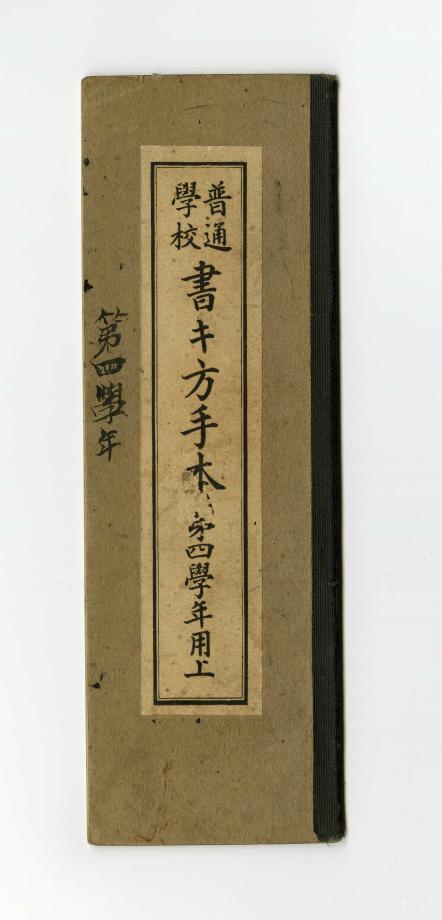 普通
學校
書キ方手本
第四學年用上
第四學年